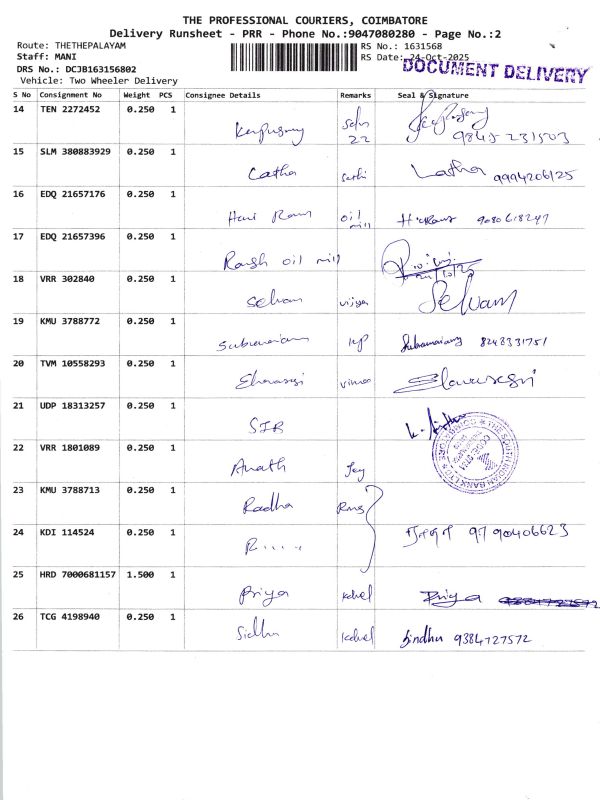 THE PROFESSIONAL COURIERS, COIMBATORE
Delivery Runsheet - PRR - Phone No.:9047080280 - Page No.:2
Route: THETHEPALAYAM
RS No.: 1631568
Staff: MANI
RS Date: 24-Oct-2025
DOCUMENT DELIVERY
DRS No.: DCJB163156802
Vehicle: Two Wheeler Delivery
S No Consignment No Weight PCS Consignee Details Remarks Seal & Signature
14 TEN 2272452 0.250 1
22 9845 231503
15 SLM 380883929 0.250 1 Latha Latha 9994206125
16 EDQ 21657176 0.250 1 Hari Ram oil mill 9080618247
17 EDQ 21657396 0.250 1 oil mill
18 VRR 302840 0.250 1 Selvam Selvam
19 KMU 3788772 0.250 1 8248331751
20 TVM 10558293 0.250 1
21 UDP 18313257 0.250 1 SIB
THE SOUTH INDIAN BANK LTD
22 VRR 1801089 0.250 1 Anath Jey
23 KMU 3788713 0.250 1 Radha
24 KDI 114524 0.250 1 R..... 9790406623
25 HRD 7000681157 1.500 1 Priya Priya
26 TCG 4198940 0.250 1 Sidhu Sindhu 9384727572